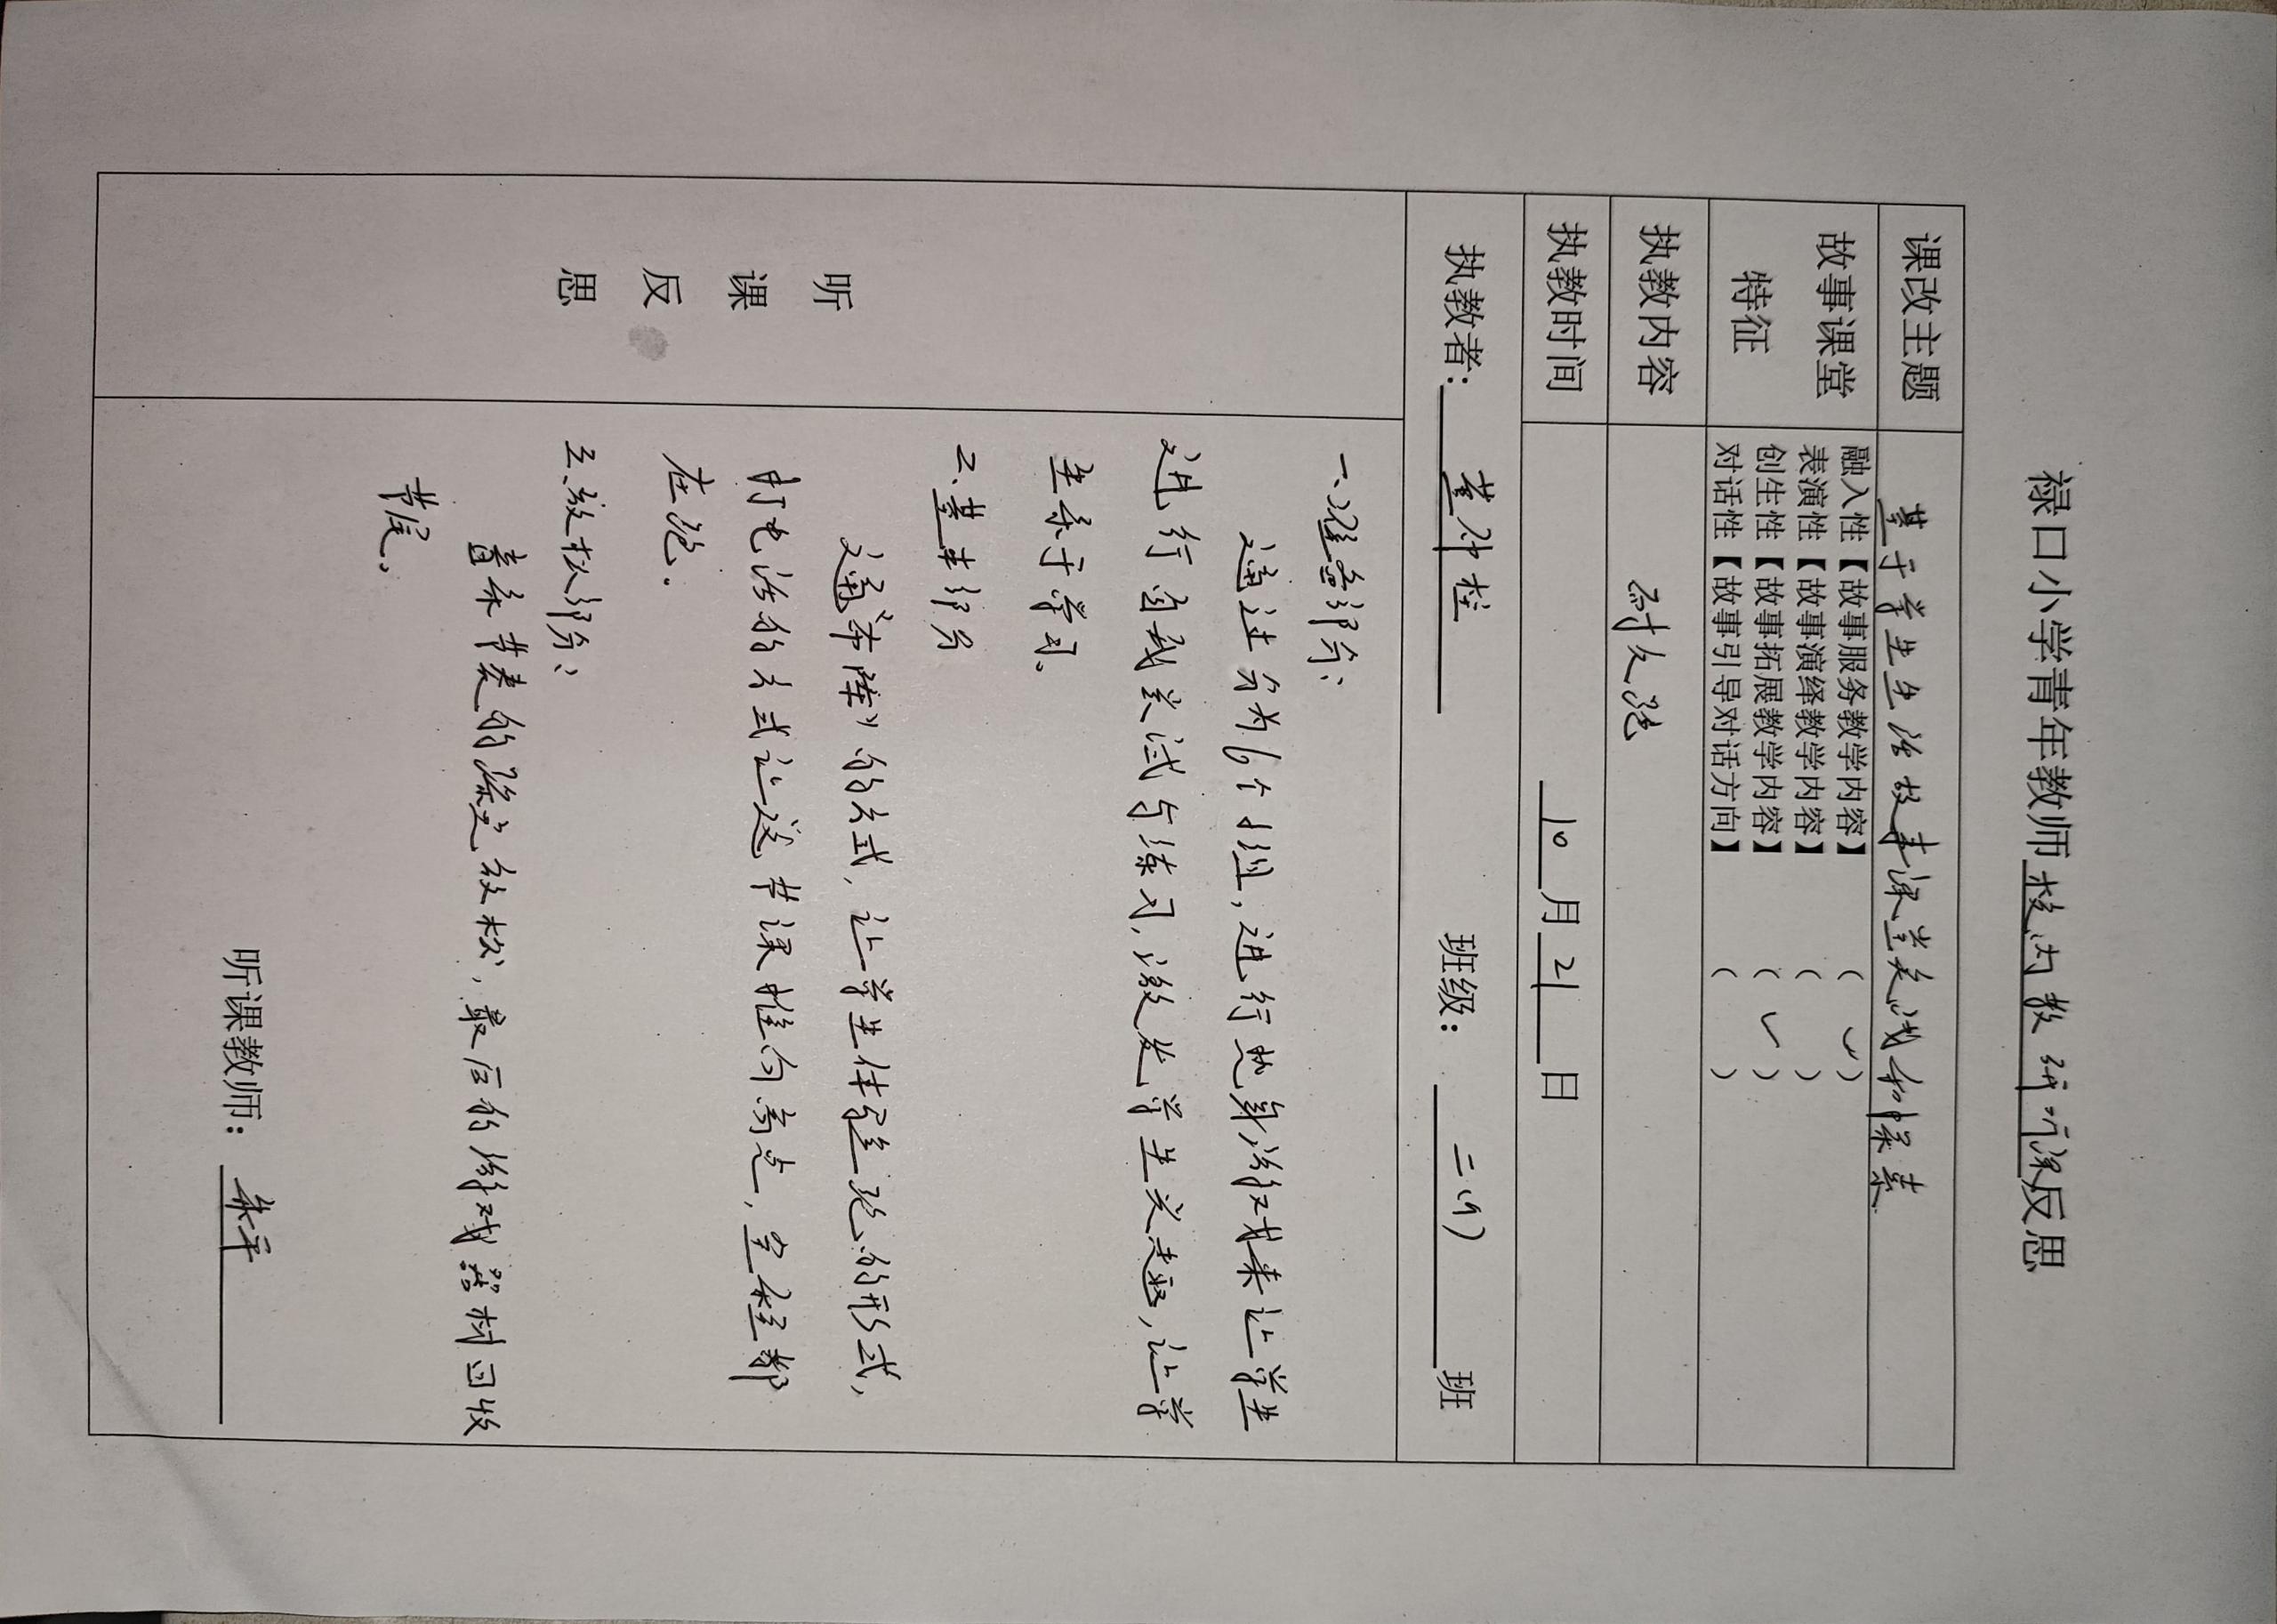 禄口小学青年教师校内教研听课反思
课改主题 基于学生生活故事课堂实践和探索
故事课堂特征
融入性【故事服务教学内容】 （ ✓ ）
表演性【故事演绎教学内容】 （ ）
创生性【故事拓展教学内容】 （ ✓ ）
对话性【故事引导对话方向】 （ ）
执教内容 耐久跑
执教时间 10 月 21 日
执教者: 班级： 二（9） 班
听课反思
一、准备部分：
通过分为6个小组，进行热身游戏来让学生
进行自我尝试与练习，激发学生兴趣，让学
生乐于学习。
二、基本部分
通“布阵”的方式，让学生体验跑的形式，
打电话的方式让这节课推向高点，全程都
在跑.
三、放松部分：
音乐节奏的放松，最后的游戏器材回收
节尾。
听课教师： 朱平